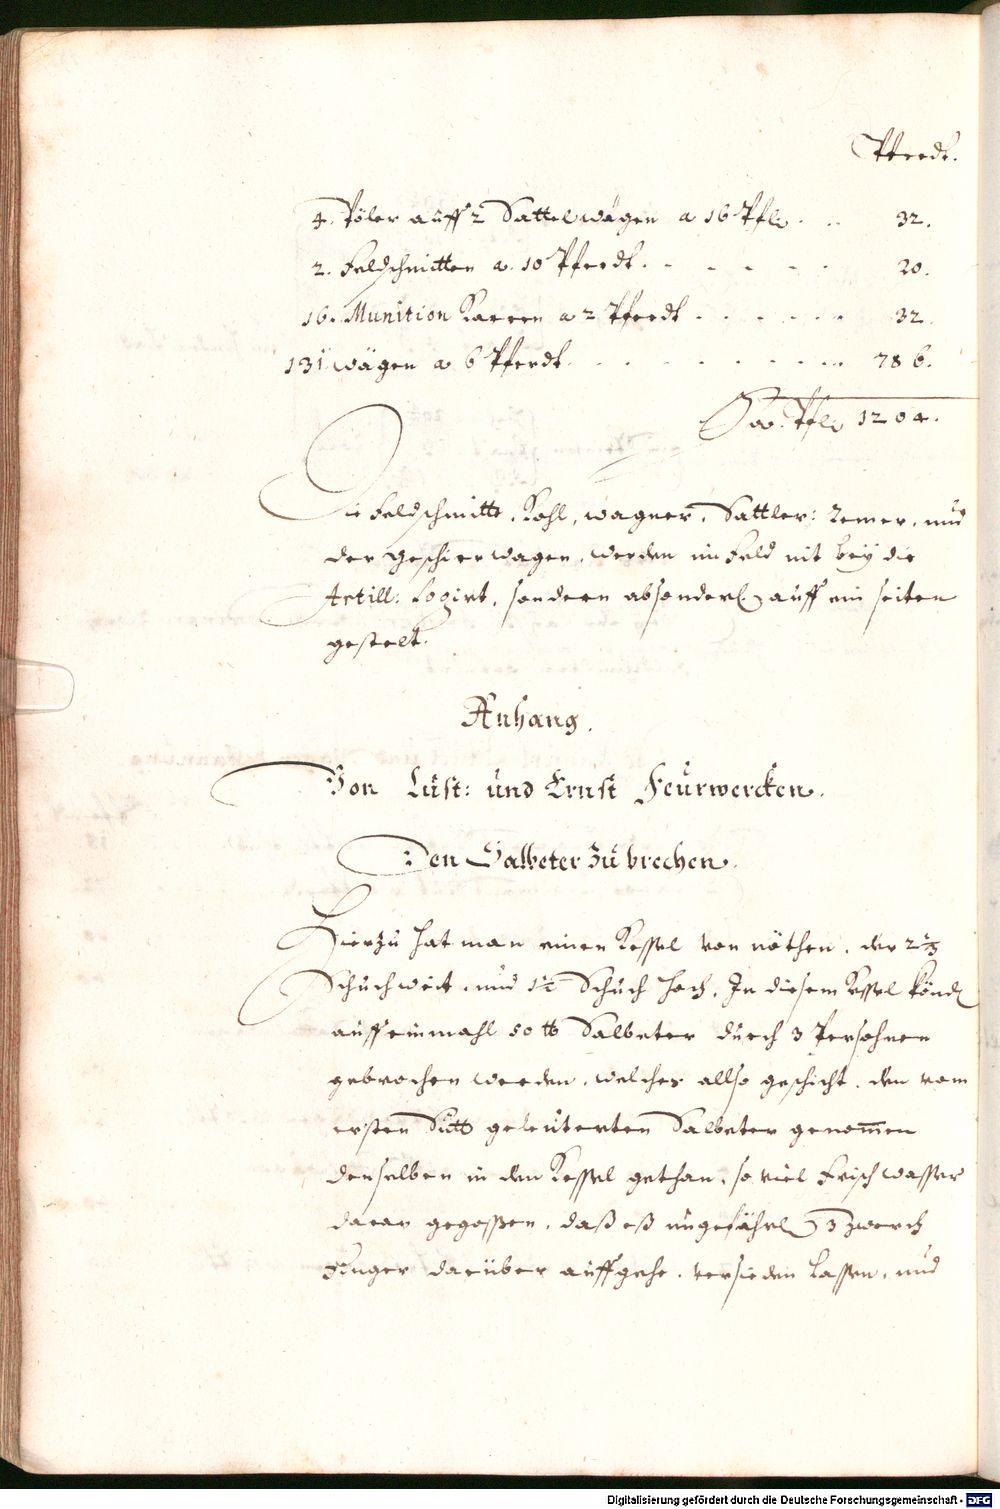 Pferdt.
4. Pöler auff 2 Sattelwägen a 16 Pfl. . . 32.
2. Feldschmitten a. 10 Pferdt. - - - - - 20.
16. Munition Karren a 2 Pferdt - - - - - - 32.
131 wägen a 6 Pferdt. - - - - - - - - 786.
Sua. Pfl. 1204.
Die Feldschmitte, Kohl, wagner, Sattler: Remer, und
der geschierwagen, werden im Feld nit beÿ die
Artill: Logirt, sondern absonderl. auff ein seiten
gestelt.
Anhang.
Von Lust: und Ernst Feürwercken.
Den Salbeter Zu brechen.
Hierzu hat man einen Kessel von nöthen, der 2 2/3
Schuch weit, und 1½ Schuch hoch, In diesem Kessel könd
auff einmahl 50 ℔ Salbeter durch 3 Persohnen
gebrochen werden, welches allso geschicht, den vom
ersten Sutt geleüterten Salbeter genom̅en
denselben in den Kessel gethan, so viel Frisch wasser
daran gegossen, daß eß ungefährl. 3 zwerch
Finger darüber auffgehe, versieden lassen, und
Digitalisierung gefördert durch die Deutsche Forschungsgemeinschaft - DFG